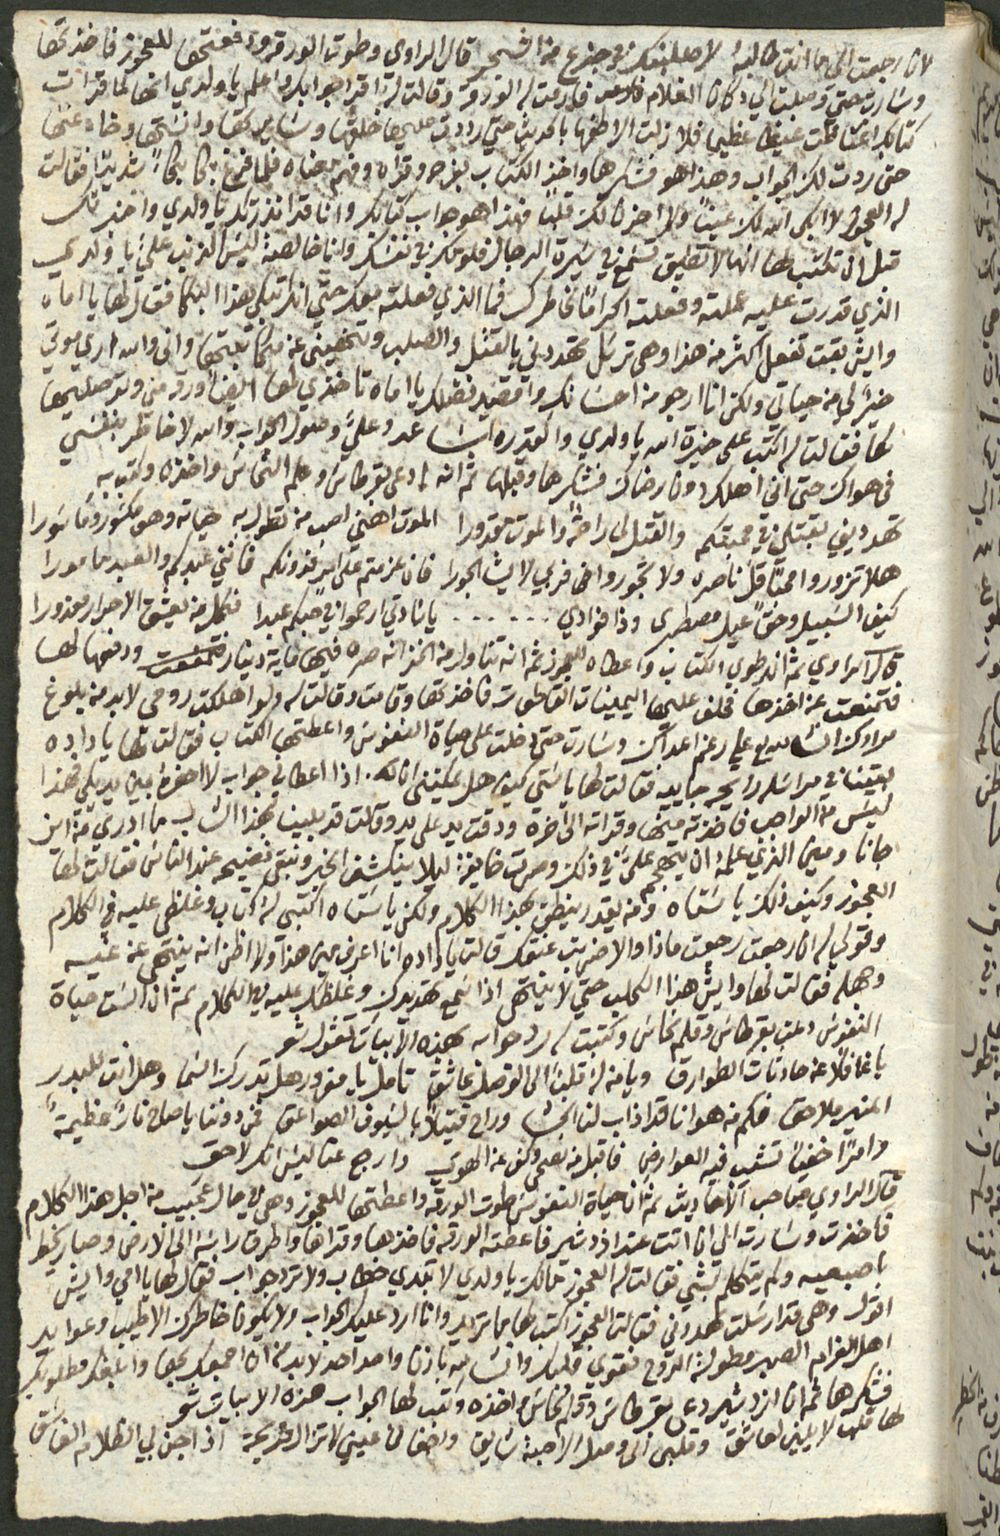 لان رجعت الى ما انت طالبه لاصلبنك في جذع من الشجر قال الراوي وطوت الورقه ودفعتها للعجوز فاخذتها
وسارت حتي وصلت الي دكان الغلام فادمت له الورقه وقالت له اقرا جوابك واعلم يا ولدي انها لما قرات
كتابك اغتاظت غيظا عظيما فلا زلت الاطفها بالحديث حتي رديت عليها خلقها
حتى ردت لك الجواب وهذا هو فشكرها واخذ الكتاب بفرح وقراه وفهم معناه فلما فرغ بكا بكاً شديدا فقالت
له العجوز لا ابكى الله لك عيناً ولا احزن لك قلبا فهذا هو جواب كتابك وانا قد انذرتك يا ولدي واخبرتك
قبل ان تكتب لها انها لا تطيق تسمع في سيرة الرجال فلومك في نفسك وانا خالصه ليس الذنب علي يا ولدي
الذي قدرت عليه عملته وفعلته اكراماً لخاطرك فما الذي فعلته معك حتي انك تبكي هذا البكا فقال لها يا اماه
وايش بقت تفعل اكثر من هذا وهي ترسل تهددني بالقتل والصلب وتنهيني عن مكاتبتها واني والله اري موتي
خيرا لي من حياتي ولكن انا ارجو من احسانك واقصد فضلك يا اماه تاخذي لها ايضا ورقه مني وتوصليها
لها فقالت له اكتب على خيرة الله يا ولدي والقدره تساعد وعليّ وصول الجواب والله لا خاطر بنفسي
في هواك حتى اني اهلك دون رضاك فشكرها وقبلها ثم انه ادعى بقرطاس وقلم النحاس واخذه وكتب به
تهدديني بقتلي في محبتكم والقتل لي راحة والموت مقدورا الموت اهنى لصب من تطول به حياته وهو مكسور وماسورا
هلا تزوروا محبّا قل ناصره ولا تجوروا فربي لا يشا الجورا فان عزمتم على امر فدونكم فانني عبدكم والعبد مامورا
كيف السبيل وحقاً عيل مصطبرى وذا فوادي . . . . . . يا سادتي ارحموا في حبكم عبدا فكل من يعشق الاحرار معذورا
قال الراوي ثم انه طوي الكتاب واعطاه للعجوز ثم انه تناول من الخزانه صره فيها مايه دينار ودفعها لها
فتمنعت عن اخذها فحلف عليها اليمينات القاطعات فاخذتها وقامت وقالت له ولو اهلكت روحي لابد من بلوغ
مرادك على رغم اعداك وسارت حتى دخلت على حياة النفوس واعطتها الكتاب فقالت لها يا داده
بقينا في مراسله رايحه جايه فقالت لها يا ستي كيف هل يمكنني انا له اذا اعطاني جواب لا احضره بين يديكي فهذا
ليس من الواجب فاخذته منها وقراته الى اخره ودقت يد على يد وقالت قد بلينا بهذا الشاب ما ادري من اين
جانا ومين الذي علمه ان يتهجم عليّ في ذلك وصرت خايفه ليلا ينكشف الخبر ونبقى فضيحه عند الناس فقالت لها
العجوز وكيف ذلك يا ستاه ومن يقدر ينطق بهذا الكلام ولكن يا ستاه اكتبي له كتاب وغلظي عليه في الكلام
وقولي له ان رجعت رجعت ماذا والا ضربت عنقك قالت يا داده انا اعرف مين هذا ولا اظن انه ينتهي عن غيه
وجهله فقالت لها وايش هذا الكلب حتي لا ينتهي اذا سمع تهديدك وغلظك عليه في الكلام ثم ان الست حياة
النفوس دعت بقرطاس وقلم نحاس وكتبت له رد جوابه بهذه الابيات تقول شعر
يا غافلا عن حادثات الطوارق ويا من له قلبٌ الى الوصل عاشق تامل يا مغرور هل تدرك السما وهل انت للبدر
المنير ملاحق فكم من هوانا قد اذاب لنا الحشا وراح قتيلًا بالسيوف الصواعق فمن دوننا يا صاح نارٌ عظيمة
وامرًا خفيا تشيب فيه العوارض فاقبل من نصحي وكف عن الهوي وارجع عما ليس انك لاحق
قال الراوي صاحب الاحاديث ثم ان حياة النفوس طوت الورقه واعطتها للعجوز وهي في حال عجيب من اجل هذا الكلام
فاخذت وسارت الي ان اتت عند ازدشير فاعطته الورقه فاخذها وقراها واطرق راسه الى الارض وصار يخط
باصبعه ولم يتكلم بشي فقالت له العجوز مالك يا ولدي لا تبدي خطاب ولا ترد جواب فقال لها يا امي وايش
اقول وهي قد ارسلت تهددني فقالت العجوز اكتب لها بما تريد وانا ارد عليك الجواب ولا يكون خاطرك الا طيب وعوايد
اهل الغرام الصبر وطولة الروح فقوي قلبك وان شا الله باذن واحد احد لابد من ان اجمعك بها وابلغك مطلوبك
فشكرها ثم ان ازدشير دعى بقرطاس وقلم نحاس واخذه وكتب لها الجواب هذه الابيات شعر
لها قلب لا يلين لعاشق وقلبي الى وصل الاحبة شايق واجفان عيني لا تزال قريحة اذا جن لي الظلام الغاسق